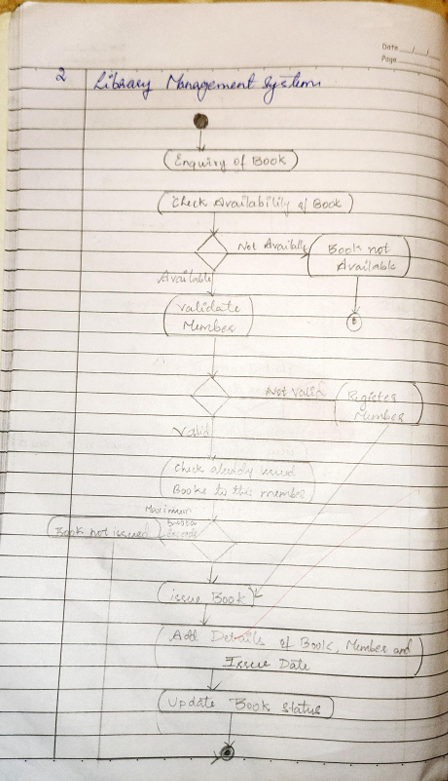 Date / /
Page
2 Library Management System
Enquiry of Book
Check Availability of Book
Not Available
Book not
Available
Available
Validate
Member
Not Valid
Register
Member
Valid
Check already issued
Books to this member
Maximum
Book not issued
issue Book
Add Details of Book, Member and
Issue Date
Update Book status